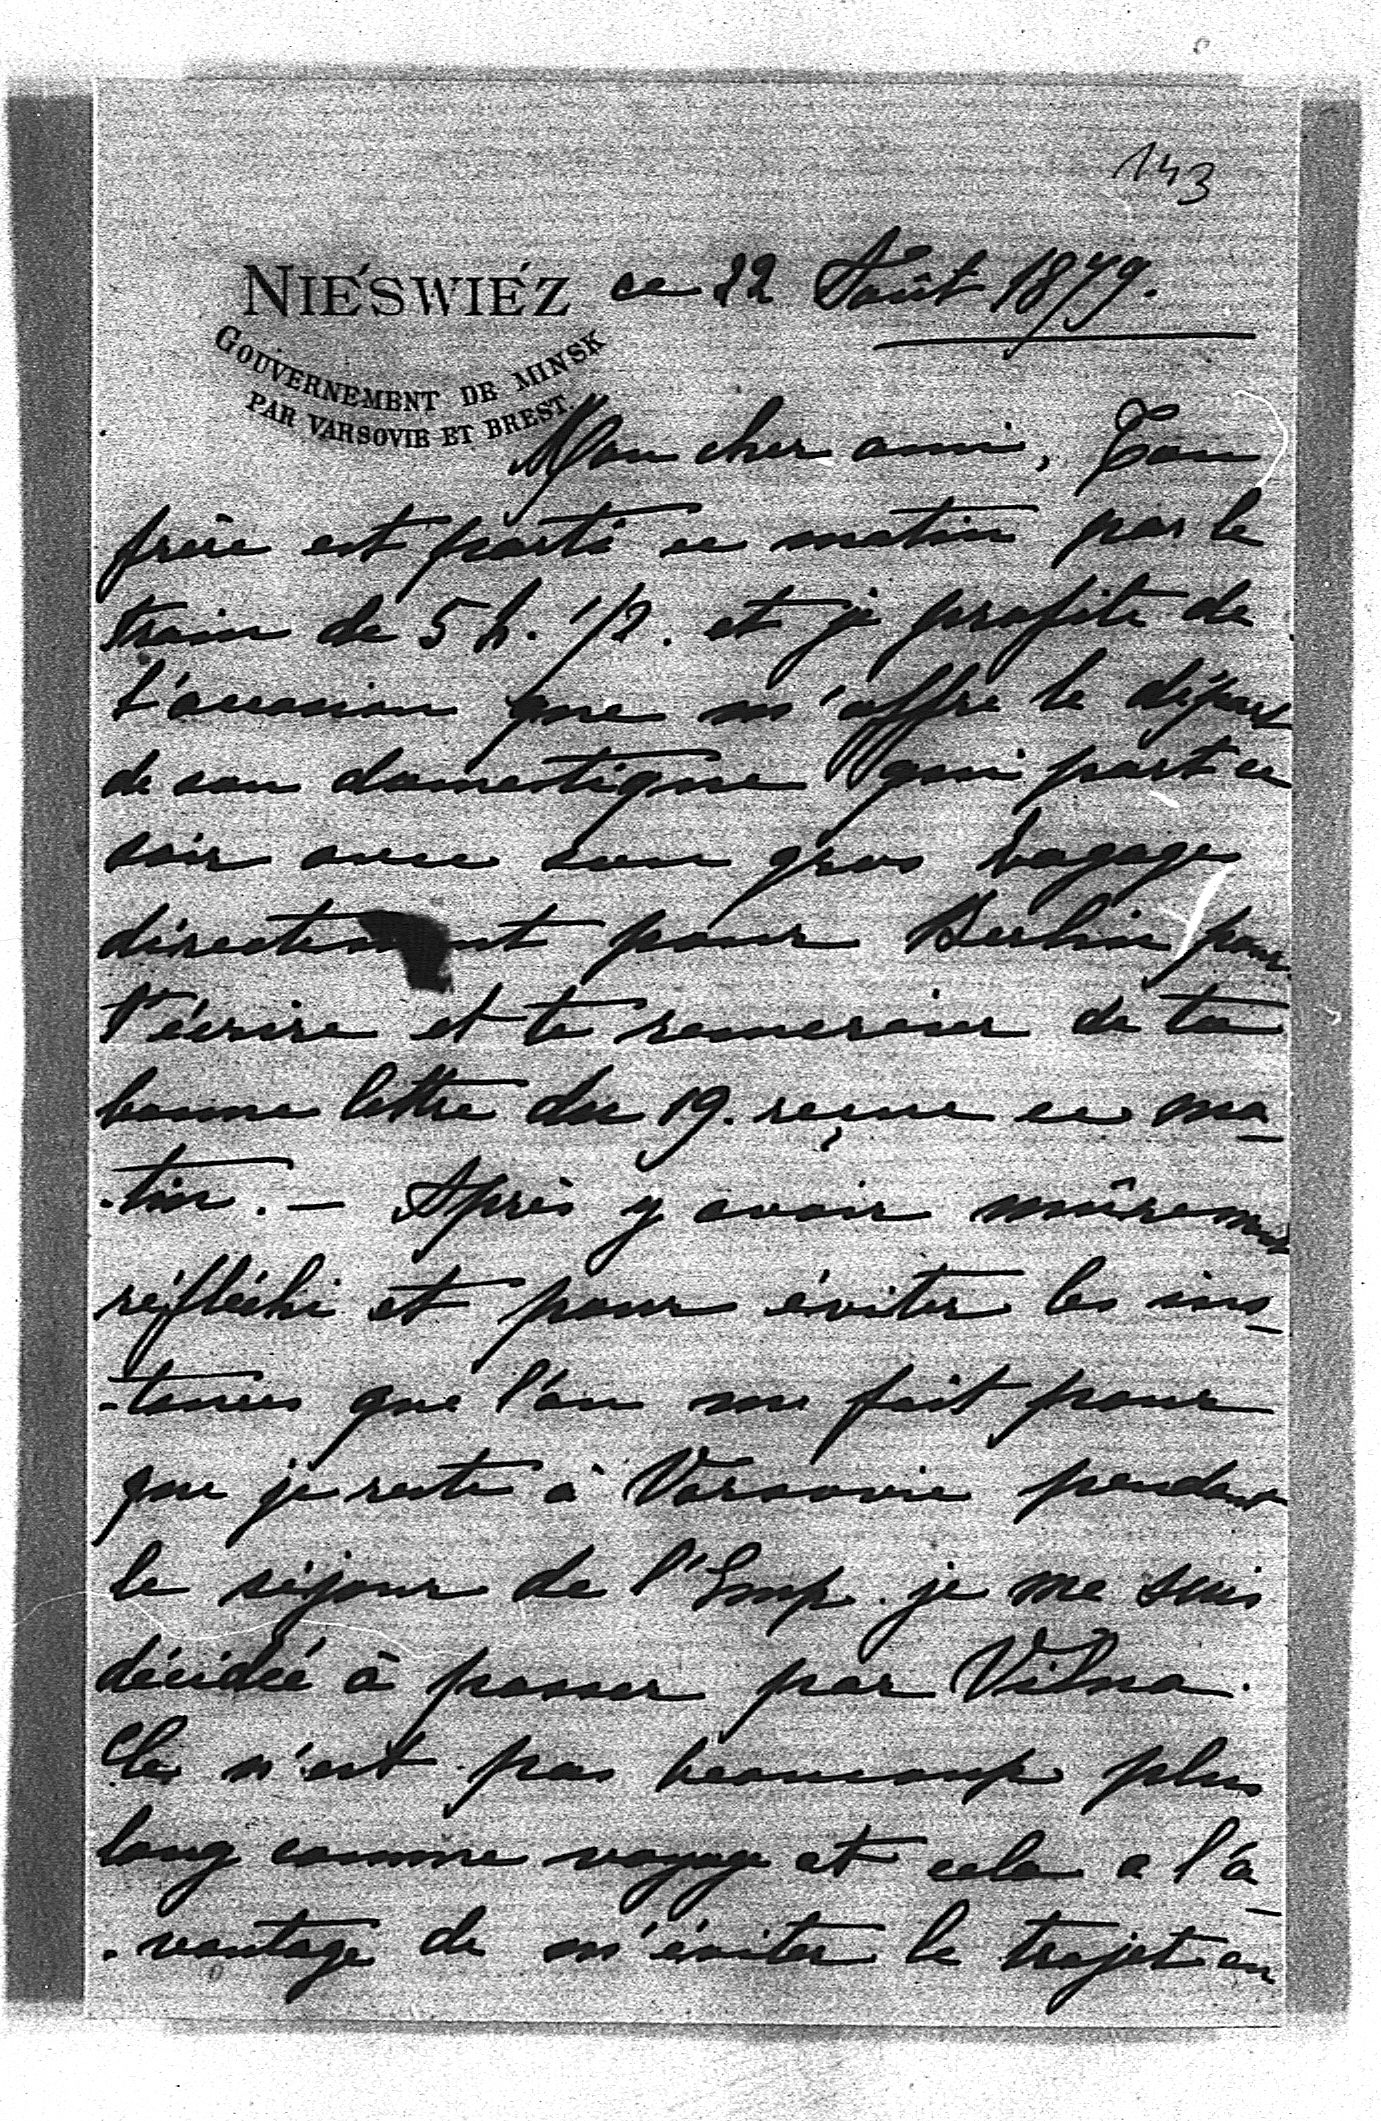 143
NIEŚWIEŹ ce 22 Août 1879.
GOUVERNEMENT DE MINSK
PAR VARSOVIE ET BREST.
Mon cher ami, Ton
frère est parti ce matin par le
train de 5 h. 1/2. et je profite de
l'occasion que m'offre le départ
de son domestique qui part ce
soir avec son gros bagage
directement pour Berlin pour
t'écrire et te remercier de ta
bonne lettre du 19. reçue ce ma-
-tin. — Après y avoir mûrement
réfléchi et pour éviter les ins-
-tances que l'on me fait pour
que je reste à Varsovie pendant
le séjour de l'Emp. je me suis
décidée à passer par Vilna.
Ce n'est pas beaucoup plus
long comme voyage et cela a l'a-
-vantage de m'éviter le trajet en